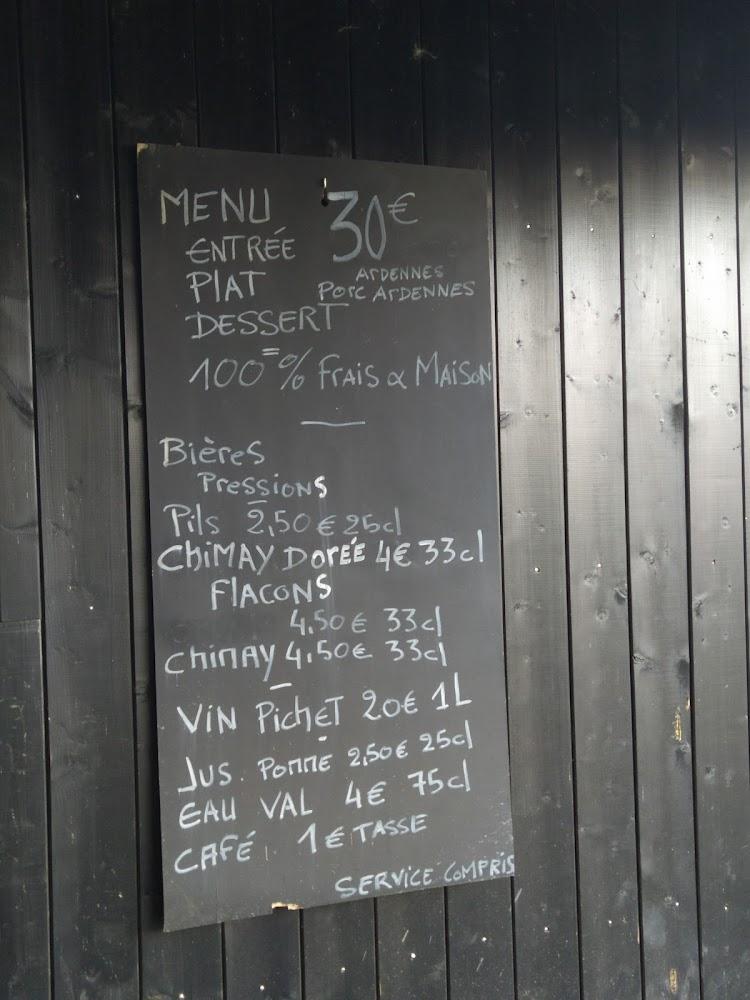 MENU 30€
ENTRÉE
ARDENNES
PLAT PORC ARDENNES
DESSERT
100% FRAIS & MAISON
Bières
Pressions
Pils 2,50€ 25cl
CHIMAY DORÉE 4€ 33cl
FLACONS
4,50€ 33cl
CHIMAY 4,50€ 33cl
VIN PICHET 20€ 1L
JUS. POMME 2,50€ 25cl
EAU VAL 4€ 75cl
CAFÉ 1€ TASSE
SERVICE COMPRIS